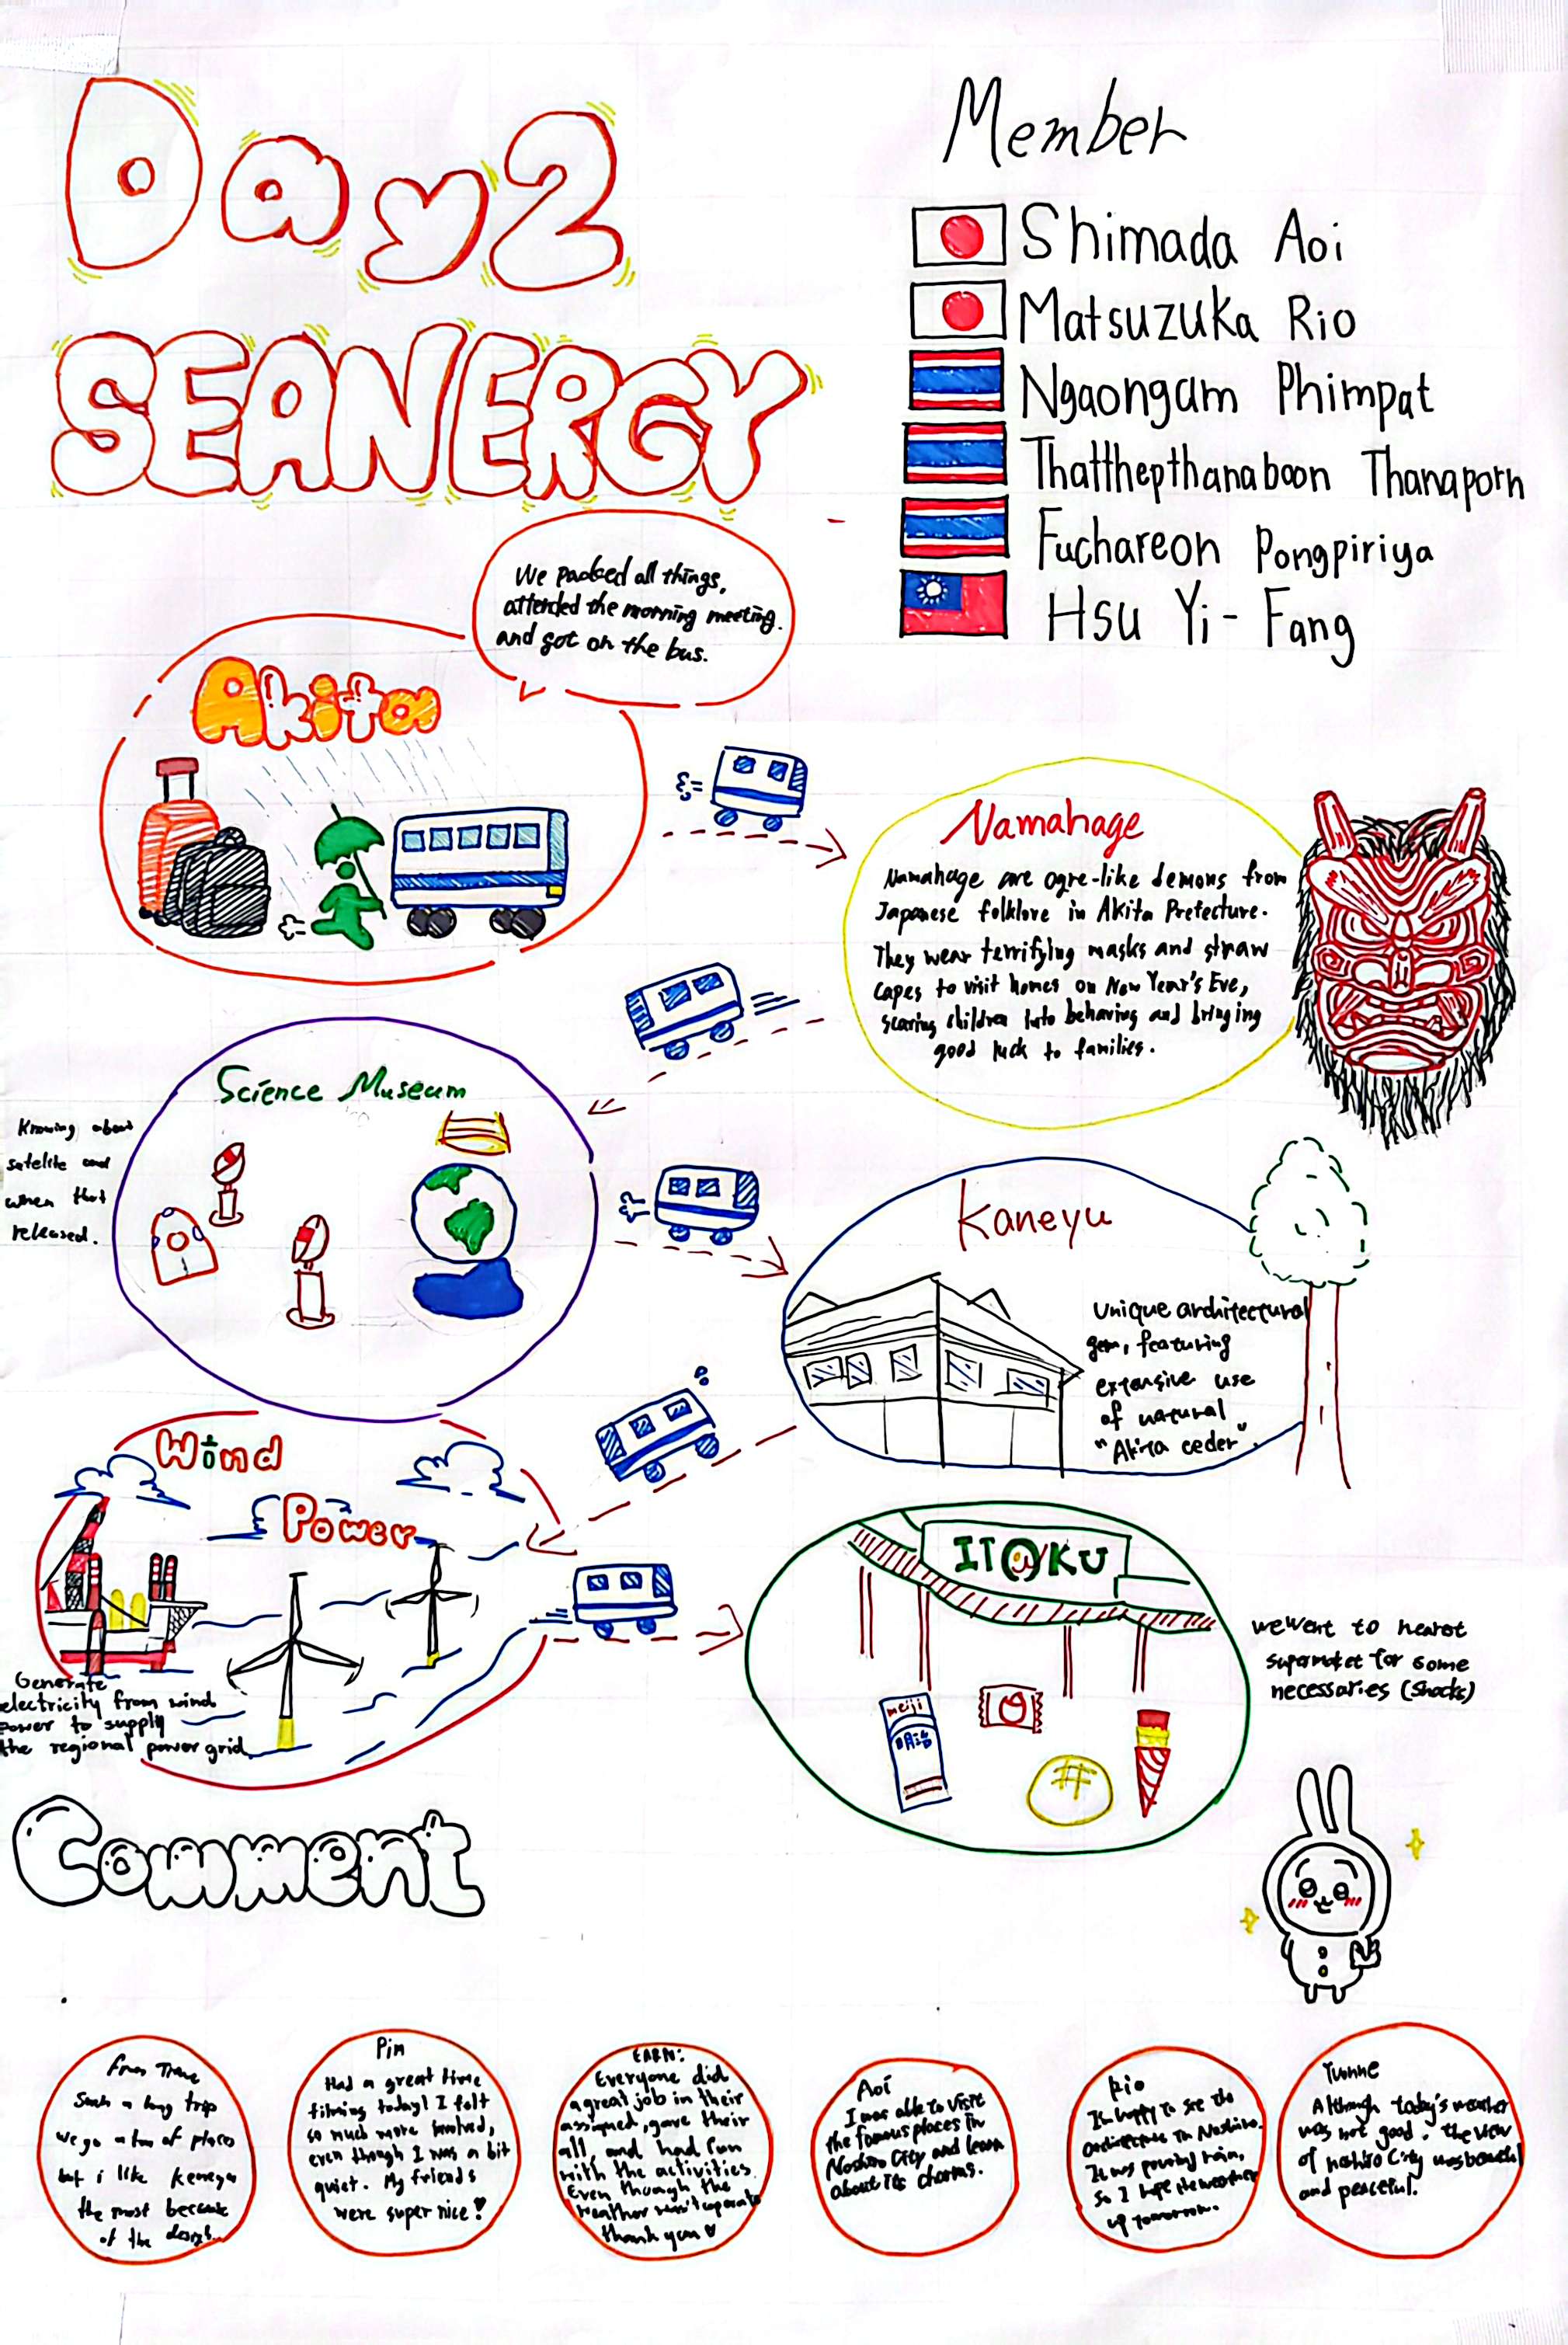 Day2
SEANERGY
Member
Shimada Aoi
Matsuzuka Rio
Ngaongam Phimpat
Thatthepthanaboon Thanaporn
Fuchareon Pongpiriya
Hsu Yi-Fang
We packed all things,
attended the morning meeting.
and got on the bus.
Akita
Namahage
Namahage are ogre-like demons from
Japanese folklore in Akita Prefecture.
They wear terrifying masks and straw
capes to visit homes on New Year's Eve,
scaring children into behaving and bringing
good luck to families.
Science Museum
Knowing about
satelite and
when that
released.
Kaneyu
Unique architectural
gem, featuring
extensive use
of natural
"Akita ceder".
Wind
Power
Generate
electricity from wind
power to supply
the regional power grid
ITOKU
we went to
supermarket for some
necessaries (Snacks)
meiji
明治
Comment
from
Such a long trip
we go a ton of places
but i like
the most because
of the design..
Pim
Had a great time
filming today! I felt
so much more involved,
even though I was a bit
quiet. My friends
were super nice!
EARN:
Everyone did
a great job in their
assigned, gave their
all, and had fun
with the activities.
Even though the
weather
thank you
Aoi
I was able to visit
the famous places in
Noshiro City and learn
about its charms.
Rio
I'm happy to see the
architecture in Noshiro.
It was pouring rain,
so I hope the weather
up tomorrow.
Yvonne
Although today's weather
was not good, the view
of noshiro City was
and peaceful.